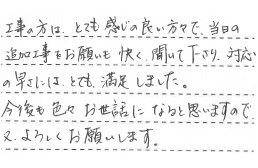 工事の方は、とても感じの良い方々で、当日の
追加工事もお願いも快く聞いて下さり、対応
の早さには、とても、満足しました。
今後も色々お世話になると思いますので
又、よろしくお願いします。